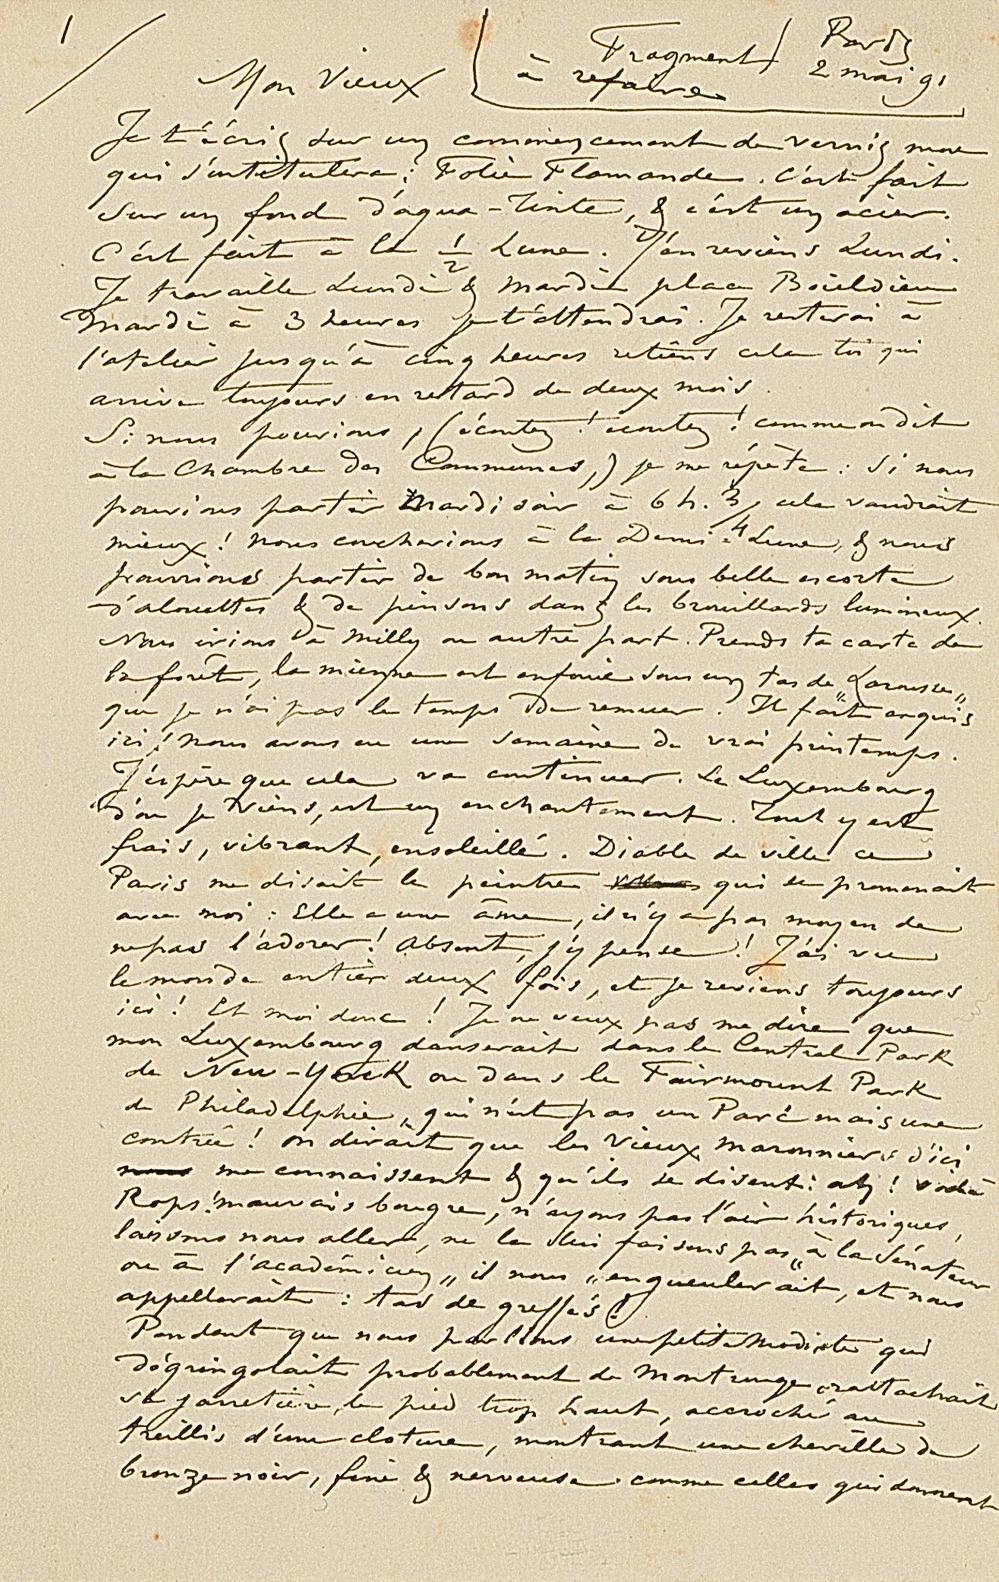 1
Fragment
à refaire
Paris
2 mai 91
Mon Vieux
Je t'écris sur un commencement de vernis mou
qui s'intitulera : Folie Flamande. C'est fait
sur un fond d'aqua-tinte, & c'est un acier.
C'est fait à la 1/2 Lune. J'en reviens Lundi.
Je travaille Lundi & Mardi place Boieldieu
Mardi à 3 heures je t'attendrai. Je resterai à
l'atelier jusqu'à cinq heures retiens cela toi qui
arrive toujours en retard de deux mois.
Si nous pouvions, (écoutez ! écoutez ! comme on dit
à la Chambre des Communes,) je me répète : Si nous
pouvions partir Mardi soir à 6 h. 3/4, cela vaudrait
mieux ! nous coucherions à la Demi-Lune, & nous
pourrions partir de bon matin sous belle escorte
d'alouettes & de pinsons dans les brouillards lumineux.
Nous irions à Milly ou autre part. Prends ta carte de
la forêt, la mienne est enfouie sous un tas de „Larousse„
que je n'ai pas le temps de remuer. Il fait exquis
ici ! nous avons eu une semaine de vrai printemps.
J'espère que cela va continuer. Le Luxembourg
d'où je viens, est un enchantement. Tout y est
frais, vibrant, ensoleillé. Diable de ville ce
Paris me disait le peintre qui se promenait
avec moi : Elle a une âme, il n'y a pas moyen de
ne pas l'adorer ! Absent, j'y pense ! J'ai vu
le monde entier deux fois, et je reviens toujours
ici ! Et moi donc ! Je ne veux pas me dire que
mon Luxembourg danserait dans le Central Park
de New-York ou dans le Fairmount Park
de Philadelphie, qui n'est pas un Parc mais une
contrée ! on dirait que les Vieux maronniers d'ici
nous me connaissent & qu'ils se disent : ah ! voilà
Rops ! mauvais bougre, n'ayons pas l'air historiques,
laissons nous aller, ne la lui faisons pas „à la Sénateur
ou à l'académicien„ il nous „engueulerait, et nous
appellerait : tas de greffés !
Pendant que nous parlions une petite Modiste qui
dégringolait probablement de Montrouge, rattachait
sa jarretière, le pied trop haut, accroché au
treillis d'une cloture, montrant une cheville de
bronze noir, fine & nerveuse comme celles qui donnent